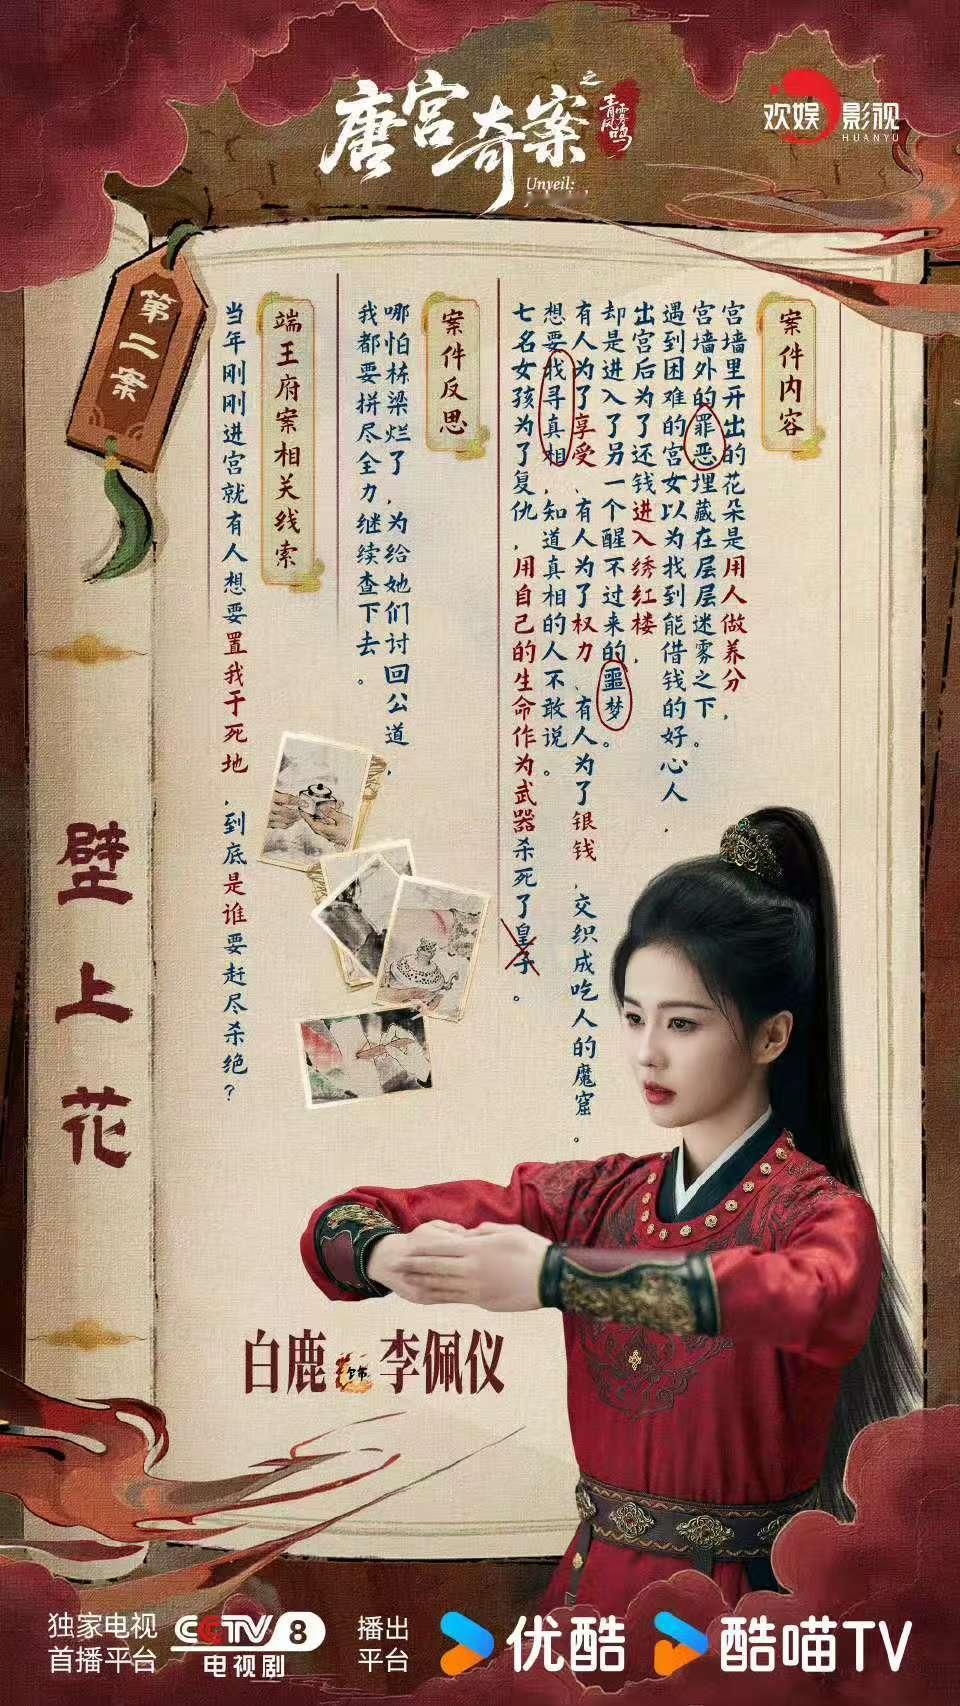 唐宫奇案
之
青雾风鸣
Unveil:
欢娱影视
HUANYU
第二案
壁上花
案件内容
宫墙里开出的花朵是用人做养分，
宫墙外的罪恶埋藏在层层迷雾之下。
遇到困难的宫女以为找到能借钱的好心人，
出宫后为了还钱进入绣红楼，
却是进入了另一个醒不过来的噩梦。
有人为了享受、有人为了权力、有人为了银钱，交织成吃人的魔窟。
想要找寻真相，知道真相的人不敢说。
七名女孩为了复仇，用自己的生命作为武器杀死了皇子。
案件反思
哪怕栋梁烂了，为给她们讨回公道，
我都要拼尽全力继续查下去。
端王府案相关线索
当年刚刚进宫就有人想要置我于死地，到底是谁要赶尽杀绝？
白鹿 饰 李佩仪
独家电视
首播平台
CCTV 8
电视剧
播出
平台
优酷
酷喵TV